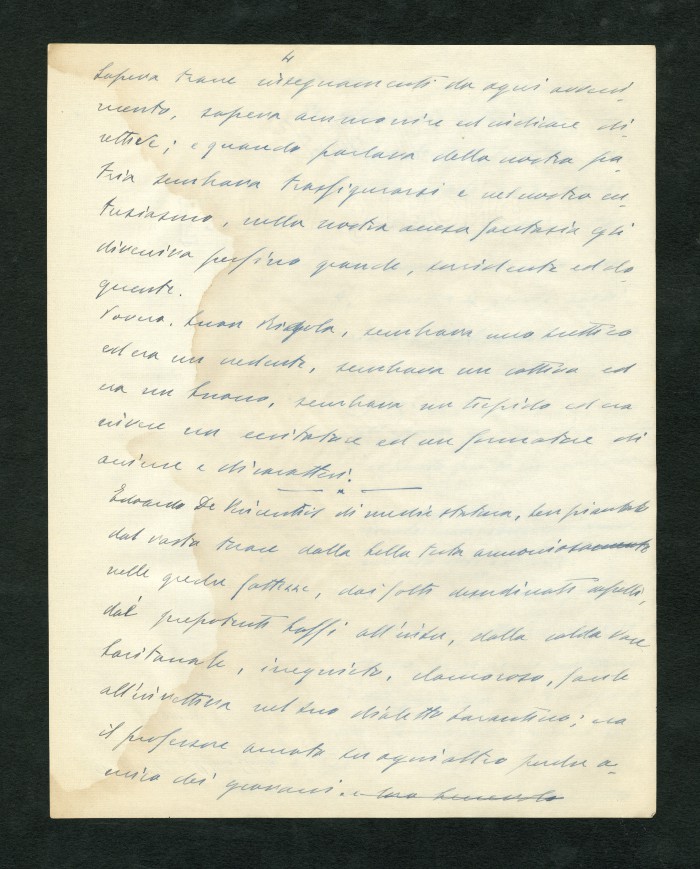 4
Sapeva trarre insegnamenti da ogni avveni-
mento, sapeva ammonire ed indicare di-
rettive; e quando parlava della nostra pa-
tria sembrava trasfigurarsi e nel nostro en-
tusiasmo, nella nostra accesa fantasia egli
diveniva perfino grande, sorridente ed elo-
quente.
Povero, buon, sembrava uno scettico
ed era un credente, sembrava un cattivo ed
era un buono, sembrava un tiepido ed era
invece un eccitatore ed un formatore di
anime e di caratteri.
Edoardo De Vincentiis di media statura, ben piantato
dal vasto torace dalla bella testa armoniosamente
nelle gredue fattezze, dai folti disordinati capelli,
dai prepotenti baffi all'insù, dalla calda voce
baritonale, irrequieto, clamoroso, facile
all'invettiva nel suo dialetto tarantino; era
il professore amato su ogni altro perchè a-
mico dei giovani. e loro benevolo